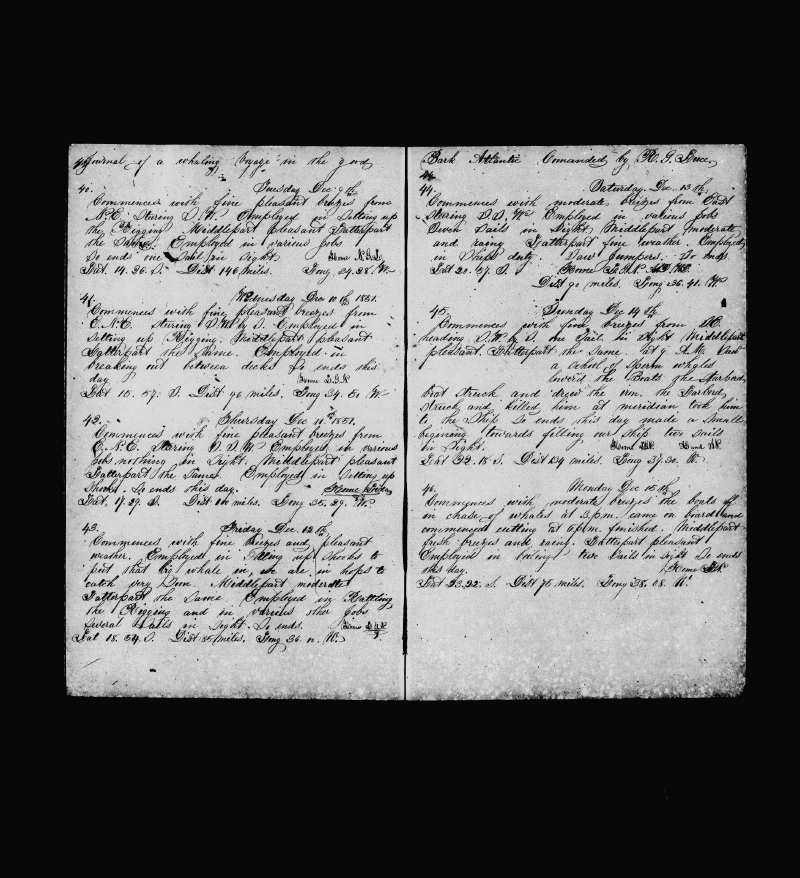 Journal of a whaling Voyage in the good
40. Tuesday Dec 9th
Commences with fine pleasant breezes from
N.E. Stering S.W. Employed in Setting up
the Rigging Middlepart pleasant Latterpart
the Same. Employed in various jobs
So ends one Sail in Sight.
Lat. 14. 26. S. Dist 146 miles. Long 34. 28. W.
41. Wednesday Dec 10th 1851.
Commences with fine pleasant breezes from
E.N.E. stering S.W. by S. Employed in
Setting up Rigging. Middlepart pleasant
Latterpart the Same. Employed in
breaking out between decks So ends this
day.
Lat 15. 57. S. Dist 90 miles. Long 34. 50 W.
42. Thursday Dec 11th 1851.
Commences with fine pleasant breezes from
E.N.E. Stering S.S.W. Employed in various
jobs nothing in Sight. Middlepart pleasant
Latterpart the Same. Employed in Setting up
Shooks. So ends this day.
Lat. 17. 29. S. Dist miles. Long 35. 29. W.
43. Friday Dec. 12th
Commences with fine brezes and pleasant
weather. Employed in Setting up Shooks to
put that big whale in, we are in hopes to
catch very Soon. Middlepart moderate
Latterpart the Same Employed in Rattling
the Rigging and in various other jobs
Several Sails in Sight. So ends.
Lat 18. 54. S. Dist 85 miles. Long 36. W.
Bark Atlantic Comanded by
44. Saturday. Dec. 13th.
Commences with moderate brezes from East
Stering S.S.W. Employed in various jobs
Seven Sails in Sight. Middlepart moderate
and rainy Latterpart fine weather. Employed
in Ships duty. Saw jumpers. So ends
Lat 20. 57. S.
Dist 90 miles. Long 36. 41. W
45. Sunday Dec 14th
Commences with fine brezes from
heading S.W. by S. one Sail in Sight Middlepart
pleasant. Latterpart the Same. at 9 A.M. Saw
a School of Sperm whales
lowerd the Boats the Starbord
boat Struck and drew the iron. the Larbord
Struck and killed him at meridian took him
to the Ship So ends this day made a Small
begening towards filling our Ship two Sails
in Sight.
Lat 22. 18 S. Dist 134 miles. Long 37. 30. W.
46. Monday Dec 15th
Commences with moderate brezes the boats off
in chase of whales at 3 p.m. came on board and
commenced cutting at 6 p.m. finished. Middlepart
fresh brezes and rainy. Latterpart pleasant
Employed in boiling two Sails in sight So ends
this day.
Lat 23. 22. S. Dist 75 miles. Long 38. 08. W.